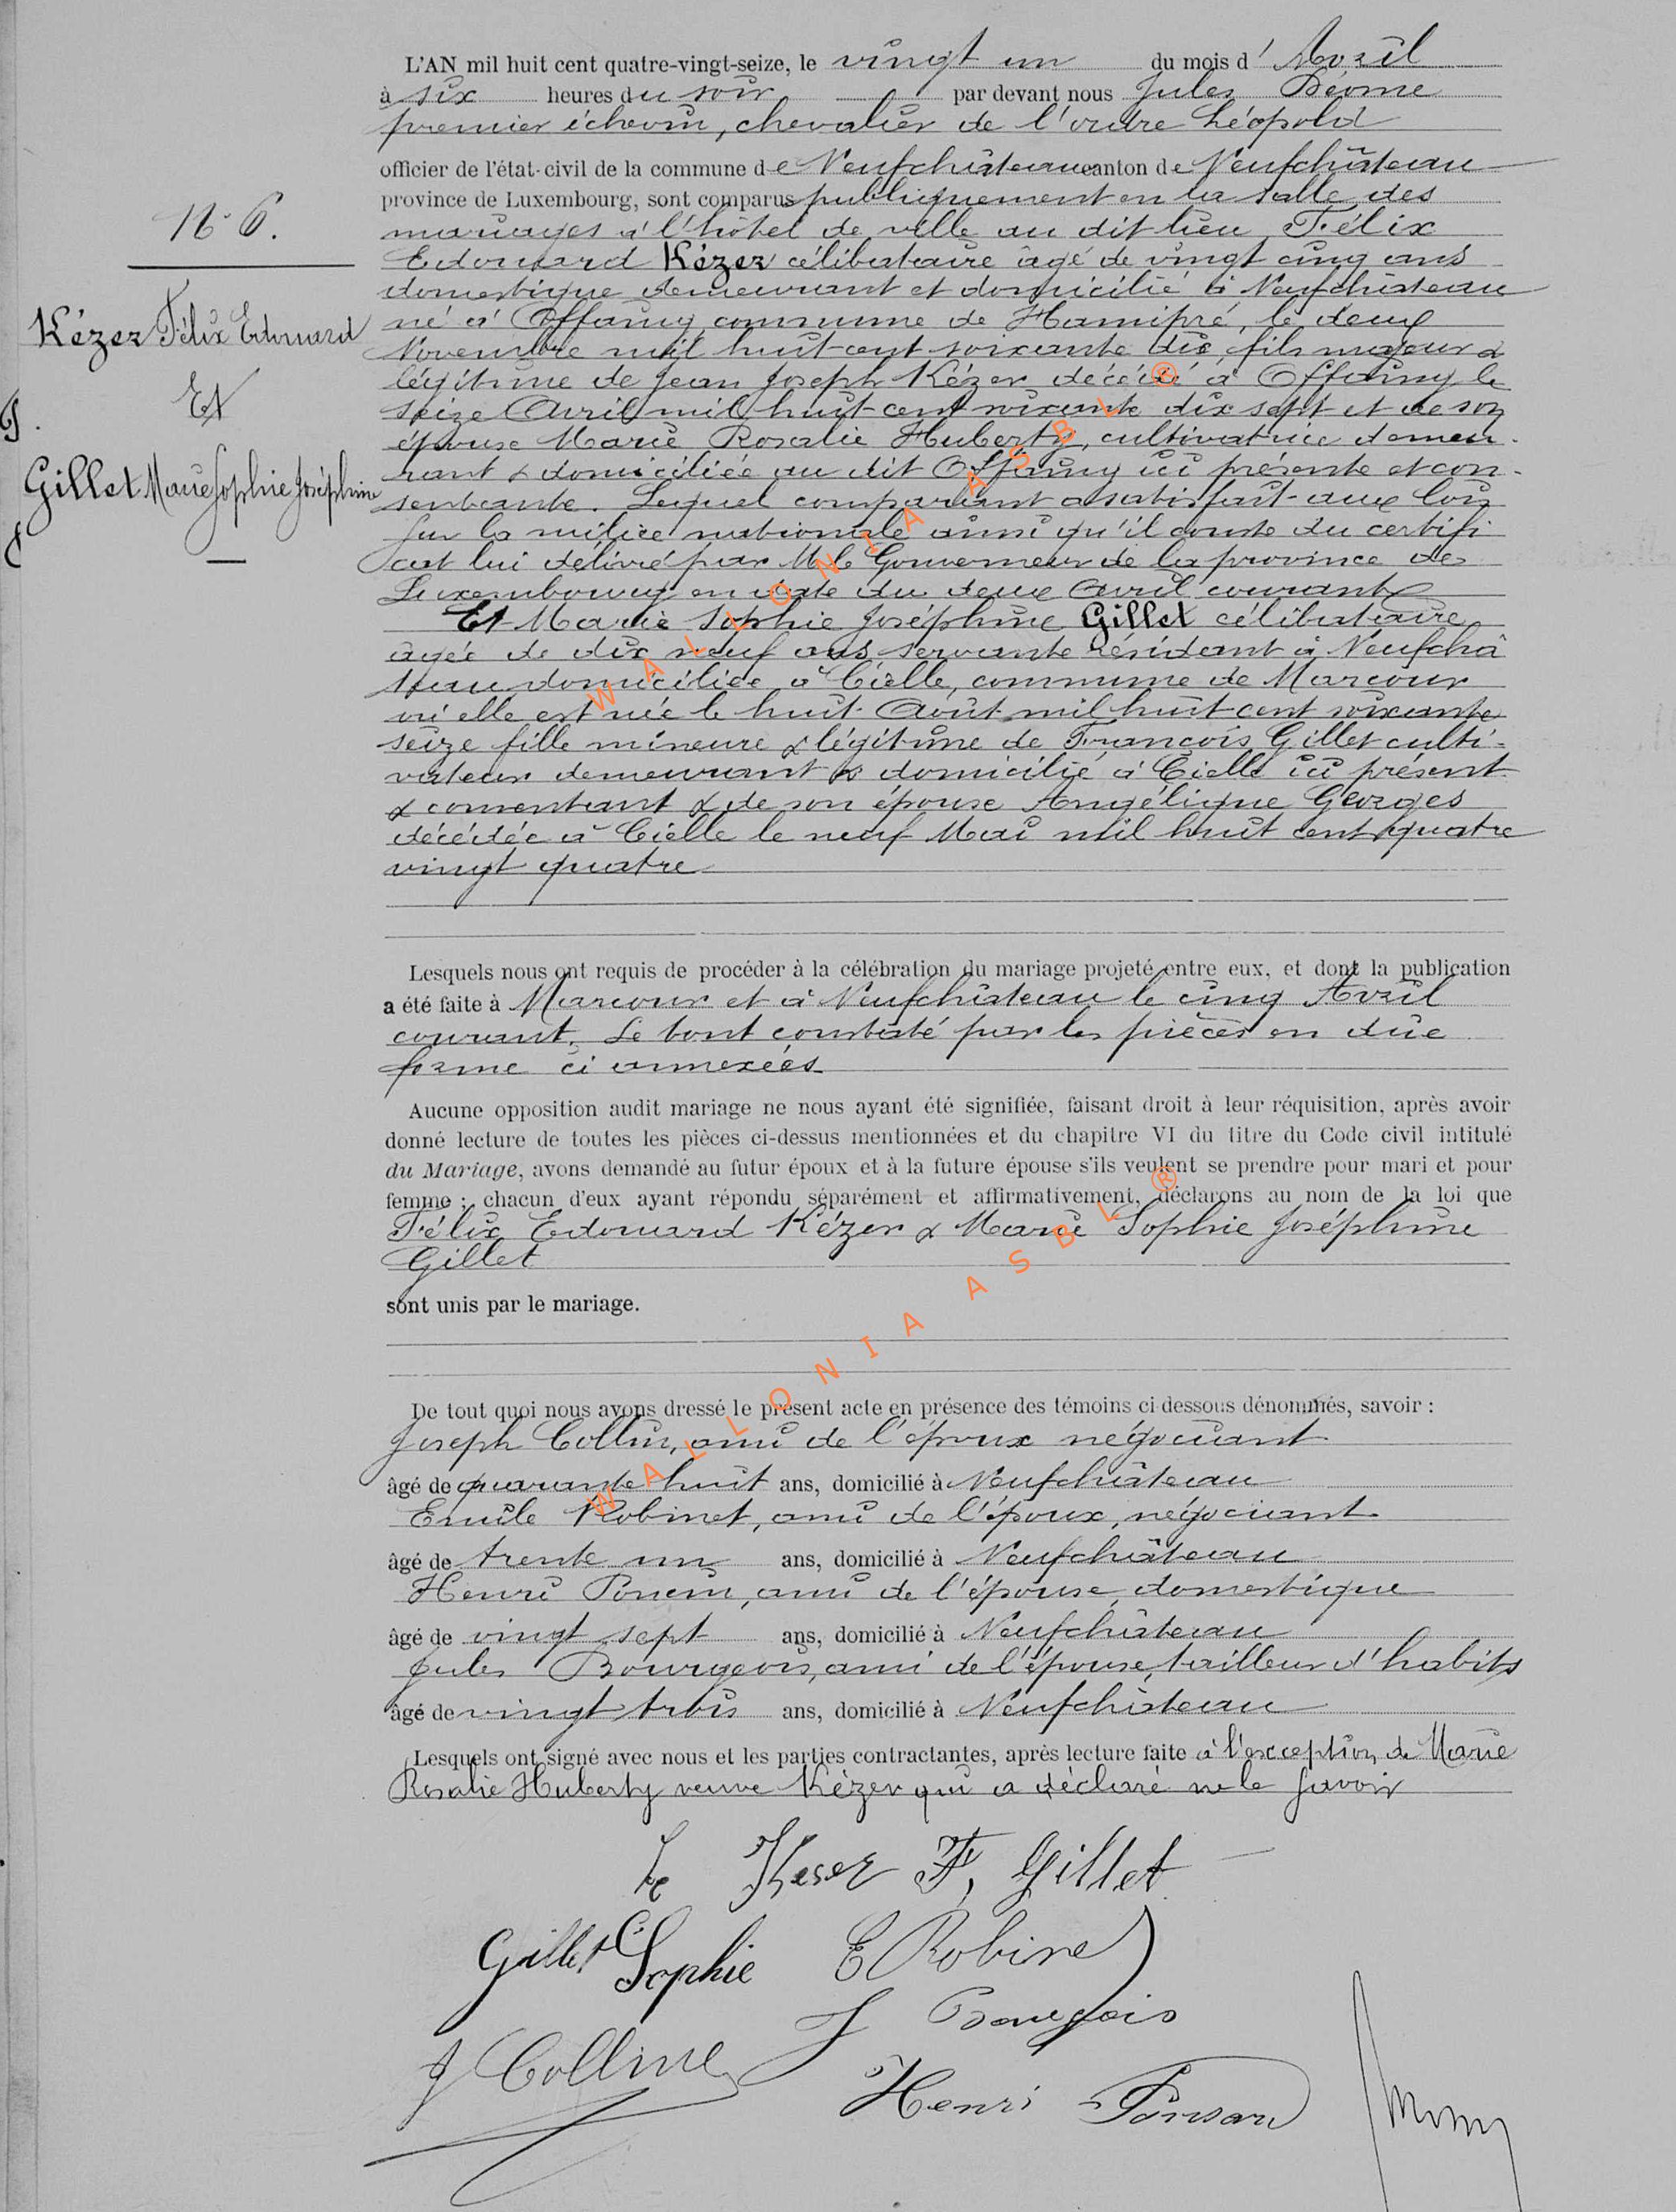 L'AN mil huit cent quatre-vingt-seize, le vingt un du mois d'Avril
à six heures du soir par devant nous Jules
premier échevin, chevalier de l'ordre Léopold
officier de l'état-civil de la commune de Neufchâteau canton de Neufchâteau
province de Luxembourg, sont comparus publiquement en la salle des
mariages à l'hôtel de ville au dit lieu Félix
Edouard Kézer célibataire âgé de vingt cinq ans
domestique demeurant et domicilié à Neufchâteau
né à Offaing commune de Hamipré, le deux
Novembre mil huit cent soixante dix, fils majeur &
légitime de Jean Joseph Kézer décédé à Offaing le
seize Avril mil huit cent soixante dix sept et de son
épouse Marie Rosalie Huberty, cultivatrice demeu-
rant & domiciliée au dit Offaing ici présente et con-
sentante. Lequel comparant a satisfait aux lois
sur la milice nationale ainsi qu'il conste du certifi
cat lui délivré par M le Gouverneur de la province de
Luxembourg en date du deux Avril courant
Et Marie Sophie Joséphine Gillet célibataire
âgée de dix neuf ans servante résidant à Neufchâ
teau domiciliée à Cielle, commune de Marcour
où elle est née le huit Août mil huit cent soixante
seize fille mineure & légitime de François Gillet culti-
vateur demeurant & domicilié à Cielle ici présent
& consentant & de son épouse Angélique Georges
décédée à Cielle le neuf Mai mil huit cent quatre
vingt quatre
N° 6.
Kézer Félix Edouard
Et
Gillet Marie Sophie Joséphine
Lesquels nous ont requis de procéder à la célébration du mariage projeté entre eux, et dont la publication
a été faite à Marcour et à Neufchâteau le cinq Avril
courant. Le tout constaté par les pièces en dûe
forme ci annexées
Aucune opposition audit mariage ne nous ayant été signifiée, faisant droit à leur réquisition, après avoir
donné lecture de toutes les pièces ci-dessus mentionnées et du chapitre VI du titre du Code civil intitulé
du Mariage, avons demandé au futur époux et à la future épouse s'ils veulent se prendre pour mari et pour
femme ; chacun d'eux ayant répondu séparément et affirmativement, déclarons au nom de la loi que
Félix Edouard Kézer & Marie Sophie Joséphine
Gillet
sont unis par le mariage.
De tout quoi nous avons dressé le présent acte en présence des témoins ci-dessous dénommés, savoir :
Joseph Collin, ami de l'époux négociant
âgé de quarante huit ans, domicilié à Neufchâteau
Emile Robinet, ami de l'époux, négociant
âgé de trente un ans, domicilié à Neufchâteau
Henri ami de l'épouse, domestique
âgé de vingt sept ans, domicilié à Neufchâteau
Jules Bourgeois, ami de l'épouse, tailleur d'habits
âgé de vingt trois ans, domicilié à Neufchâteau
Lesquels ont signé avec nous et les parties contractantes, après lecture faite à l'exception de Marie
Rosalie Huberty veuve Kézer qui a déclaré ne le savoir
Keser F, Gillet
Gillet Sophie E Robinet
J Bourgeois
J Colline
Henri Ponsard
WALLONIA ASBL ®
WALLONIA ASBL ®